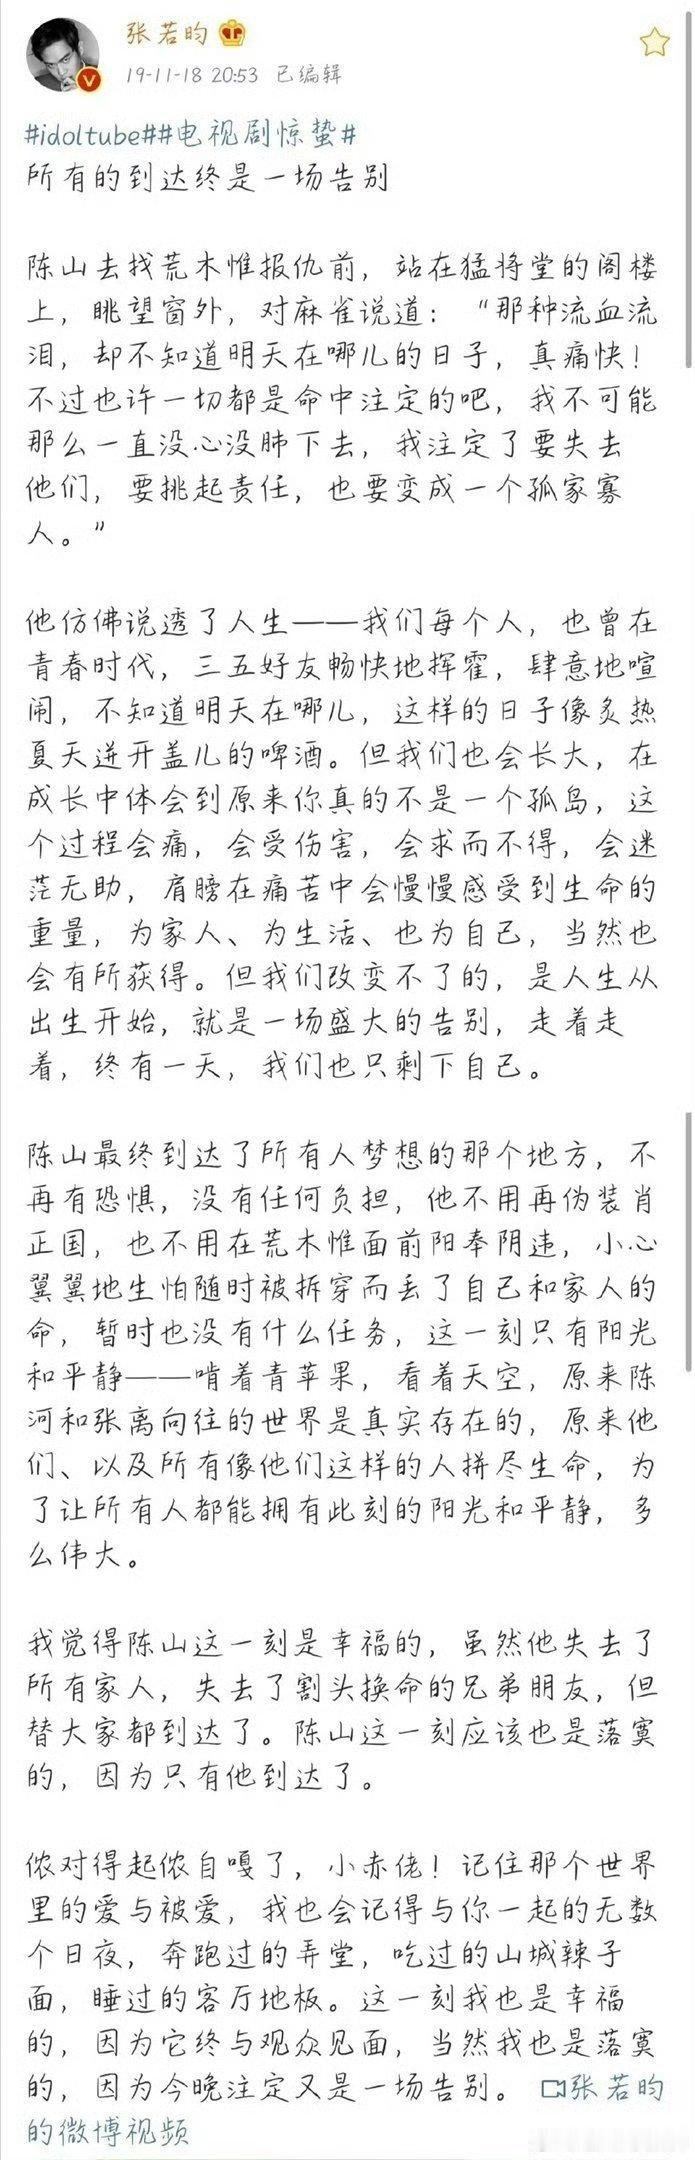 张若昀
19-11-18 20:53 已编辑
#idoltube##电视剧惊蛰#
所有的到达终是一场告别
陈山去找荒木惟报仇前，站在猛将堂的阁楼
上，眺望窗外，对麻雀说道：“那种流血流
泪，却不知道明天在哪儿的日子，真痛快！
不过也许一切都是命中注定的吧，我不可能
那么一直没心没肺下去，我注定了要失去
他们，要挑起责任，也要变成一个孤家寡
人。”
他仿佛说透了人生——我们每个人，也曾在
青春时代，三五好友畅快地挥霍，肆意地喧
闹，不知道明天在哪儿，这样的日子像炙热
夏天迸开盖儿的啤酒。但我们也会长大，在
成长中体会到原来你真的不是一个孤岛，这
个过程会痛，会受伤害，会求而不得，会迷
茫无助，肩膀在痛苦中会慢慢感受到生命的
重量，为家人、为生活、也为自己，当然也
会有所获得。但我们改变不了的，是人生从
出生开始，就是一场盛大的告别，走着走
着，终有一天，我们也只剩下自己。
陈山最终到达了所有人梦想的那个地方，不
再有恐惧，没有任何负担，他不用再伪装肖
正国，也不用在荒木惟面前阳奉阴违，小心
翼翼地生怕随时被拆穿而丢了自己和家人的
命，暂时也没有什么任务，这一刻只有阳光
和平静——啃着青苹果，看着天空，原来陈
河和张离向往的世界是真实存在的，原来他
们、以及所有像他们这样的人拼尽生命，为
了让所有人都能拥有此刻的阳光和平静，多
么伟大。
我觉得陈山这一刻是幸福的，虽然他失去了
所有家人，失去了割头换命的兄弟朋友，但
替大家都到达了。陈山这一刻应该也是落寞
的，因为只有他到达了。
侬对得起侬自嘎了，小赤佬！记住那个世界
里的爱与被爱，我也会记得与你一起的无数
个日夜，奔跑过的弄堂，吃过的山城辣子
面，睡过的客厅地板。这一刻我也是幸福
的，因为它终与观众见面，当然我也是落寞
的，因为今晚注定又是一场告别。张若昀
的微博视频